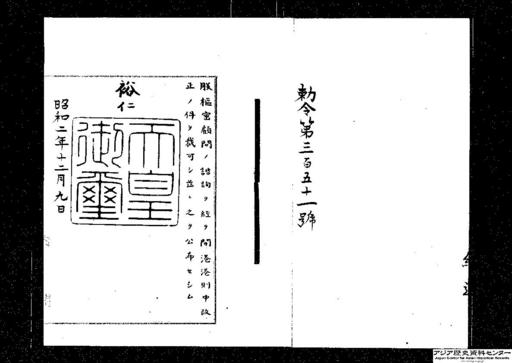 勅令第三百五十一號
朕樞密顧問ノ諮詢ヲ經テ開港港則中改
正ノ件ヲ裁可シ茲ニ之ヲ公布セシム
裕仁
天皇
御璽
昭和二年十二月九日
アジア歴史資料センター
Japan Center for Asian Historical Records